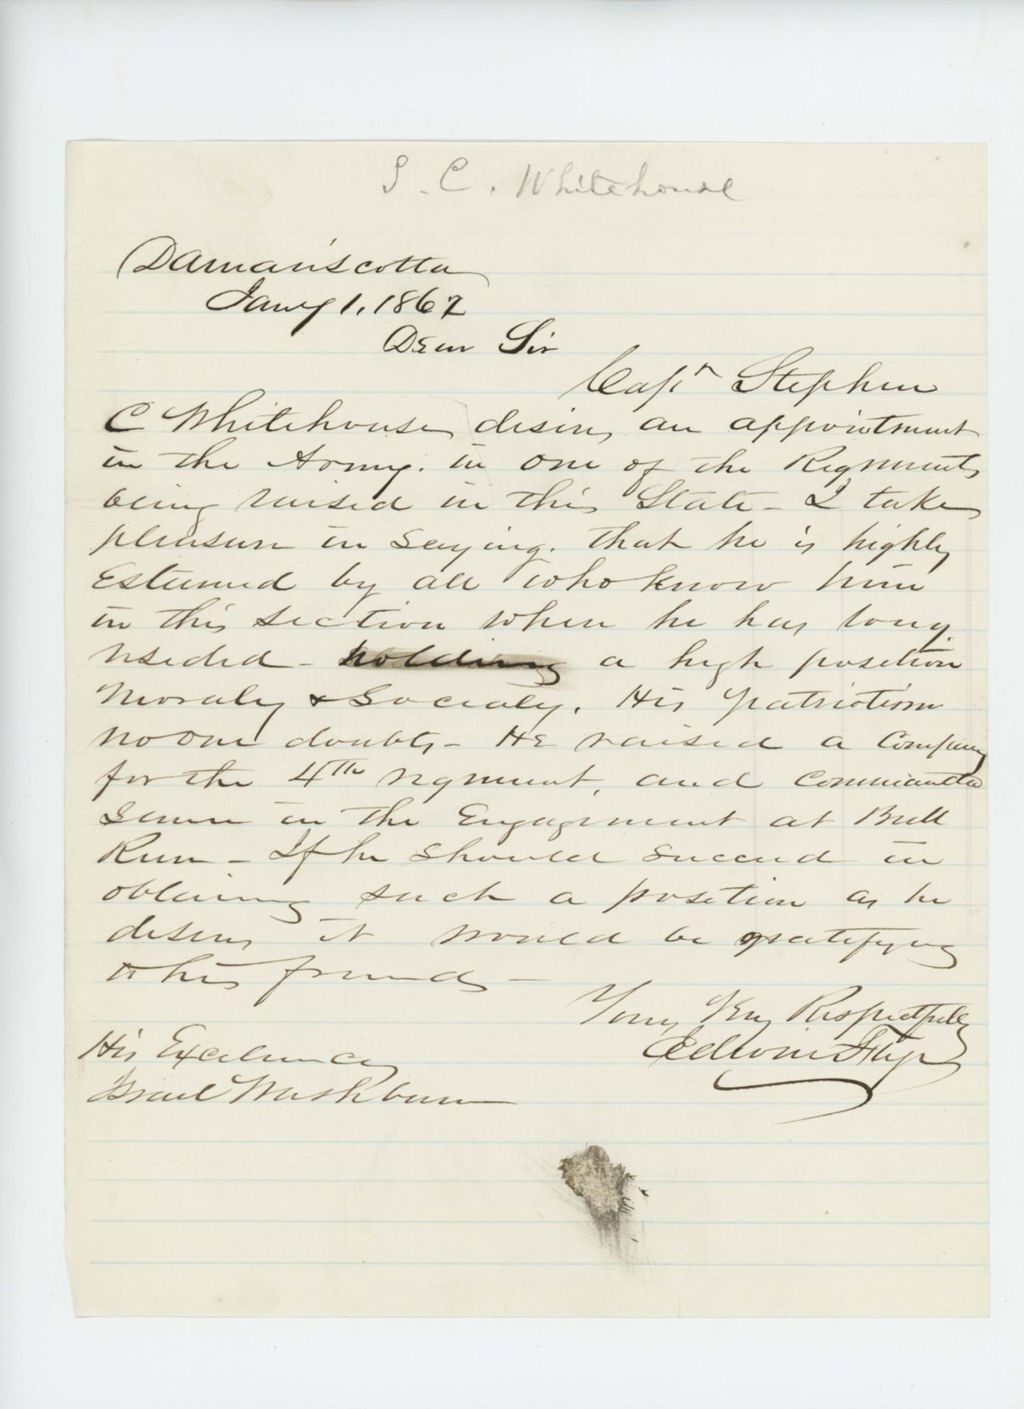 S. C. Whitehouse
Damariscotta
Jany 1, 1862
Dear Sir
Capt Stephen
C Whitehouse desires an appointment
in the Army. in one of the Regiments
being raised in this State - I take
pleasure in saying. that he is highly
Esteemed by all who know him
in this section where he has long
resided - holding a high position
Moraly & Socialy. His patriotism
no one doubts - He raised a Company
for the 4th regiment, and commanded
same in the Engagement at Bull
Run - If he should succeed in
obtaining such a position as he
desires it would be gratifying
to his friends -
Yours Very Respectfully
Edwin Flye
His Excellency
Israel Washburn